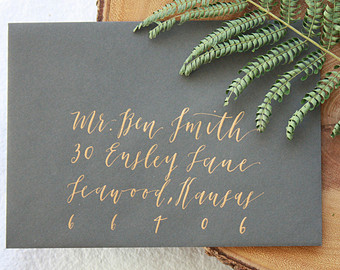 Mr. Ben Smith
30 Ensley Lane
Seawood, Kansas
6 6 4 0 6